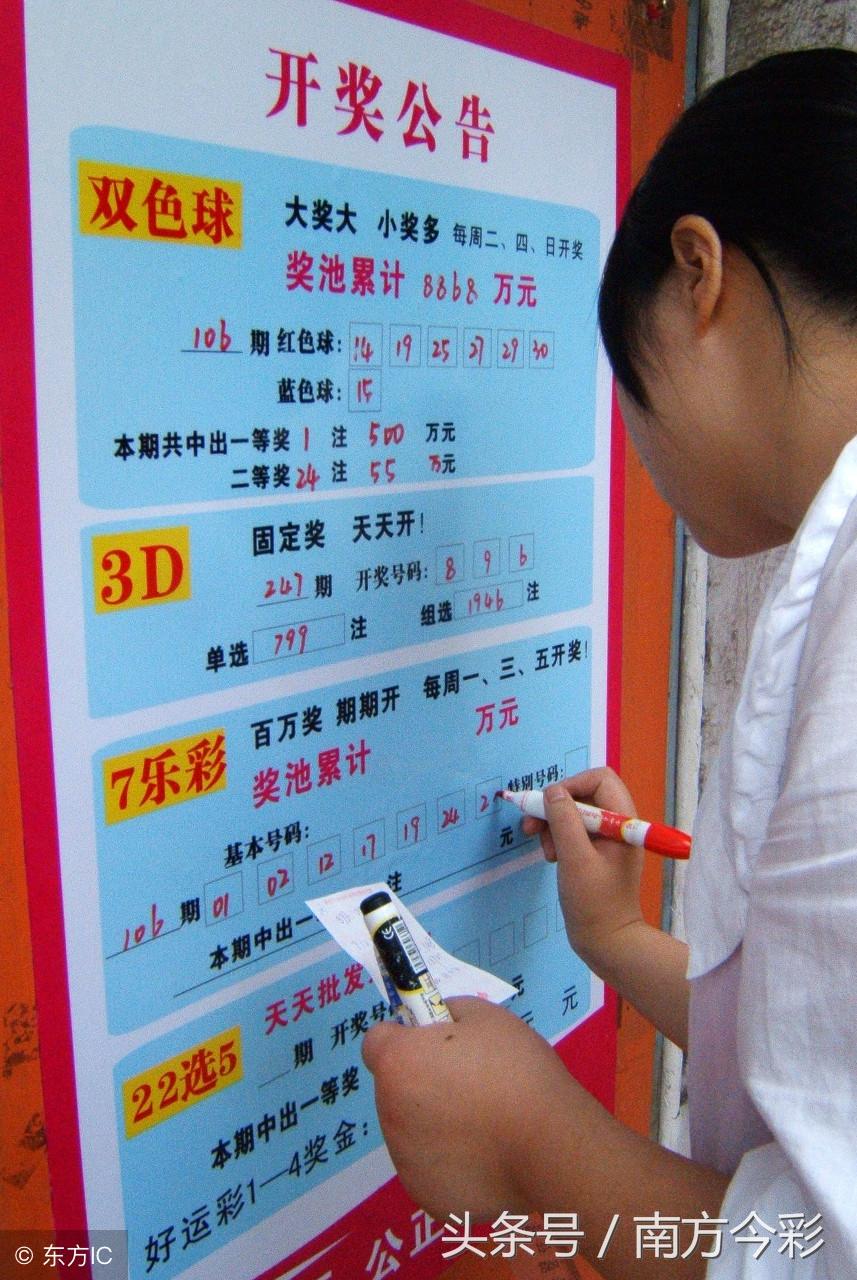 开奖公告
双色球 大奖大 小奖多 每周二、四、日开奖
奖池累计 8868 万元
106 期 红色球: 14 19 25 27 29 30
蓝色球: 15
本期共中出一等奖 1 注 500 万元
二等奖 24 注 55 万元
3D 固定奖 天天开!
247 期 开奖号码: 8 9 6
单选 799 注 组选 1946 注
7乐彩 百万奖 期期开 每周一、三、五开奖!
奖池累计 万元
基本号码: 特别号码:
106 期 01 02 12 17 19 24 2
本期中出一 注 元
22选5 天天批发
期 开奖号
本期中出一等奖 元
好运彩1—4奖金:
公正
© 东方IC
头条号 / 南方今彩